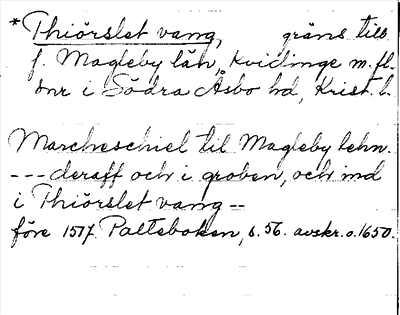 *Thiörslet vang, gräns till
f. Magleby län, Kvidinge m. fl.
snr i Södra Åsbo hd, Krist. l.
Marcheschiel til Magleby lehn.
--- deraff och i groben, och ind
i Thiörslet vang --
före 1517. Palteboken, s. 56. avskr. o. 1650.